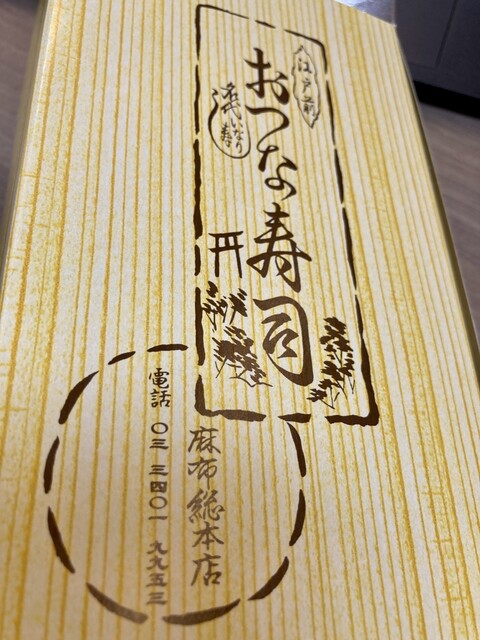 江戸前
おつな寿司
名代いなり寿し
麻布総本店
電話 〇三 三四〇一 九九五三